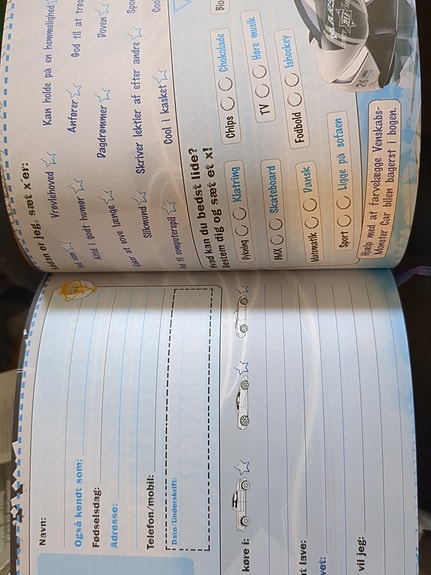 Navn:
Også kendt som:
Fødselsdag:
Adresse:
Telefon/mobil:
Dato/Underskrift:
køre i:
t lave:
vet:
vil jeg:
dan er jeg, sæt x'er:
Vrøvlehoved
Kan holde på en hemmelighed
Altid i godt humør
Anfører
God til at
at sove længe
Dagdrømmer
Doven
Slikmund
Skriver lektier af efter andre
til computerspil
Cool i kasket
Hvad kan du bedst lide?
Bestem dig og sæt et x!
Chips
Chokolade
Bio
Klatring
TV
Høre musik
BMX
Skateboard
Fodbold
Ishockey
Matematik
Dansk
Sport
Ligge på sofaen
Hjælp med at farvelægge Venskabs-
Monster Car bilen bagerst i bogen.